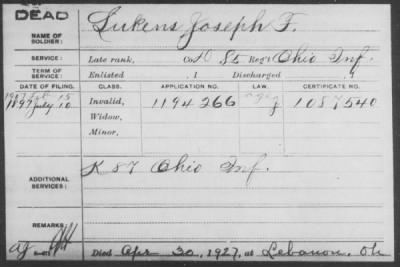 DEAD
NAME OF SOLDIER: Lukens Joseph F.
SERVICE: Late rank, Co. D 85 Reg't Ohio Inf.
TERM OF SERVICE: Enlisted , 1 Discharged , 1
DATE OF FILING. CLASS. APPLICATION NO. LAW. CERTIFICATE NO.
1907 Feb 15
1897 July 10 Invalid, 1194266 1087540
Widow,
Minor,
ADDITIONAL SERVICES: K 87 Ohio Inf.
REMARKS:
Died Apr 30, 1927, at Lebanon, Oh